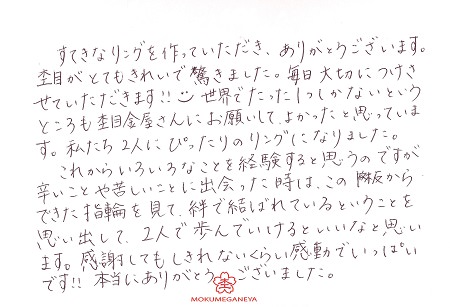 すてきなリングを作っていただき、ありがとうございます。
杢目がとてもきれいで驚きました。毎日大切につけさ
せていただきます!! 世界でたった1つしかないという
ところも杢目金屋さんにお願いしてよかったと思っていま
す。私たち2人にぴったりのリングになりました。
これからいろいろなことを経験すると思うのですが
辛いことや苦しいことに出会った時は、この一枚の板から
できた指輪を見て、絆で結ばれているということを
思い出して、2人で歩んでいけるといいなと思い
ます。感謝してもしきれないくらい感動でいっぱい
です!! 本当にありがとうございました。
MOKUMEGANEYA